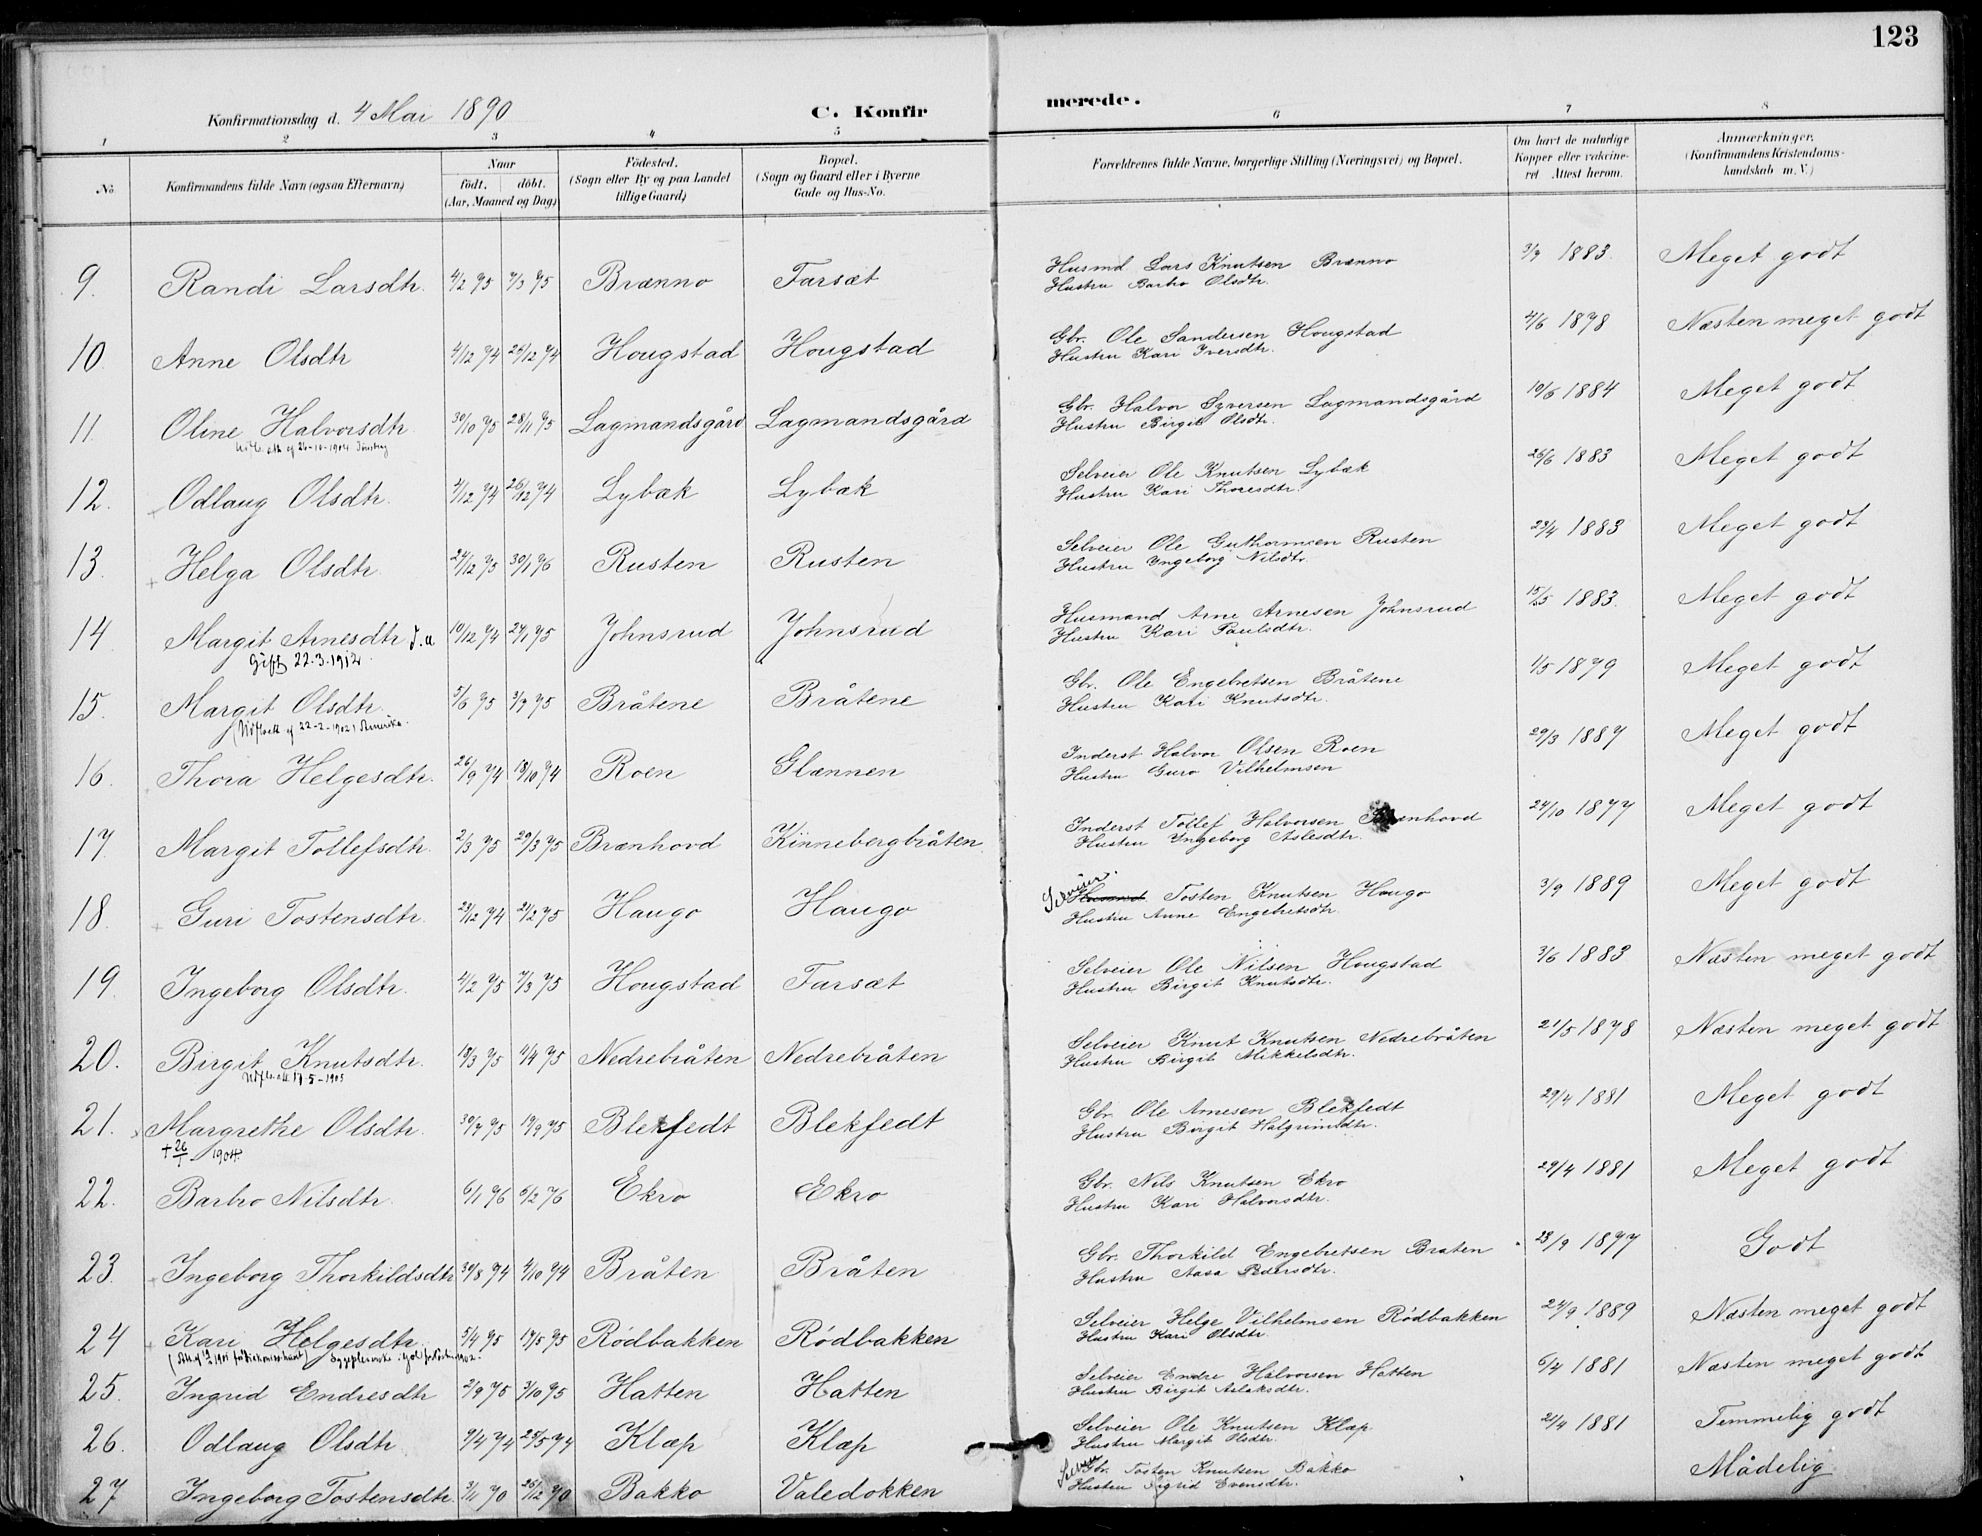 123
Konfirmationsdag d. 4 Mai 1890
C. Konfirmerede.
1 2 3 4 5 6 7 8
No. Konfirmandens fulde Navn (ogsaa Efternavn) Naar födt. döbt. (Aar, Maaned og Dag) Födested. (Sogn eller By og paa Landet tillige Gaard) Bopæl. (Sogn og Gaard eller i Byerne Gade og Hus-No. Forældrenes fulde Navne, borgerlige Stilling (Næringsvei) og Bopæl. Om havt de naturlige Kopper eller vakcineret Attest herom. Anmærkninger. (Konfirmandens Kristendomskundskab m. V.)
9. Randi Larsdtr. 4/2 75 7/3 75 Brænno Farsæt Husmd Lars Knutsen Brænno 3/9 1883. Meget godt
Hustru Barbro Olsdtr.
10. Anne Olsdtr 4/12 74 26/12 74 Hougstad Hougstad Gbr. Ole Sandersen Hougstad 4/6 1878 Næsten meget godt
Hustru Kari Iversdtr.
11. Oline Halvorsdtr. 30/10 75 28/11 75 Lagmandsgård Lagmandsgård Gbr. Halvor Syversen Lagmandsgård 10/6 1884 Meget godt
26-10-1904
Hustru Birgit Olsdtr.
12. Odlaug Olsdtr. 4/12 74 26/12 74 Lybæk Lybæk Selveier Ole Knutsen Lybæk 26/6 1883 Meget godt
Hustru Kari Thoresdtr.
13. Helga Olsdtr. 24/12 75 30/1 76 Rusten Rusten Selveier Ole Guthormsen Rusten 23/4 1883 Meget godt
Hustru Ingeborg Nilsdtr.
14. Margit Arnesdtr J.a 10/12 74 24/1 75 Johnsrud Johnsrud Husmand Arne Arnesen Johnsrud 15/5 1883. Meget godt
Gift 22.3.1912.
Hustru Kari Paulsdtr.
15. Margit Olsdtr. 5/6 75 3/7 75 Bråtene Bråtene Gbr. Ole Engebretsen Bråtene 1/5 1879 Meget godt
22-2-1902 Amerika.
Hustru Kari Knutsdtr.
16. Thora Helgesdtr. 26/9 74 18/10 74 Roen Glænnen Inderst Halvor Olsen Roen 29/3 1887 Meget godt
Hustru Guro Vilhelmsen
17. Margit Tollefsdtr. 2/3 75 29/3 75 Brænhovd Kinnebergbråten Inderst Tollef Halvorsen Brænhovd 24/10 1877 Meget godt
Hustru Ingeborg Aslesdtr.
18. Guri Tostensdtr. 23/12 74 21/2 75 Haugo Haugo Selveier Tosten Knutsen Haugo 3/9 1889 Meget godt
Hustru Anne Engebretsdtr.
19. Ingeborg Olsdtr. 4/2 75 7/3 75 Hougstad Farsæt Selveier Ole Nilsen Hougstad 3/6 1883 Næsten meget godt
Hustru Birgit Knutsdtr.
20. Birgit Knutsdtr. 18/3 75 4/4 75 Nedrebråten Nedrebråten Selveier Knut Knutsen Nedrebråten 21/5 1878 Næsten meget godt
5-1903
Hustru Birgit Mikkelsdtr.
21. Margrethe Olsdtr. 30/7 75 19/9 75 Blekfedt Blekfedt Gbr. Ole Arnesen Blekfedt 29/4 1881 Meget godt
+ 26/1 1904.
Hustru Birgit Halgrimsdtr.
22. Barbro Nilsdtr. 6/1 76 6/2 76 Ekro Ekro Gbr. Nils Knutsen Ekro 29/4 1881 Meget godt
Hustru Kari Halvorsdtr.
23. Ingeborg Thorkildsdtr 30/8 74 4/10 74 Bråten Bråten Gbr. Thorkild Engebretsen Braten 28/9 1877 Godt
Hustru Aasa Pedersdtr.
24 Kari Helgesdtr. 5/4 75 17/5 75 Rödbakken Rödbakken Selveier Helge Vilhelmsen Rödbakken 24/9 1889 Næsten meget godt
Hustru Kari Olsdtr.
25. Ingrid Endresdtr 2/9 75 3/10 75 Hatten Hatten Selveier Endre Halvorsen Hatten 6/4 1881 Næsten meget godt
Hustru Birgit Aslaksdtr.
26. Odlaug Olsdtr. 9/4 74 25/5 74 Klæp Klæp Selveier Ole Knutsen Klæp 2/4 1881 Temmelig godt
Hustru Margit Olsdtr.
27 Ingeborg Tostensdtr. 3/11 70 26/12 70 Bakko Valedokken Gbr. Tosten Knutsen Bakko Mådelig
Hustru Sigrid Evensdtr.